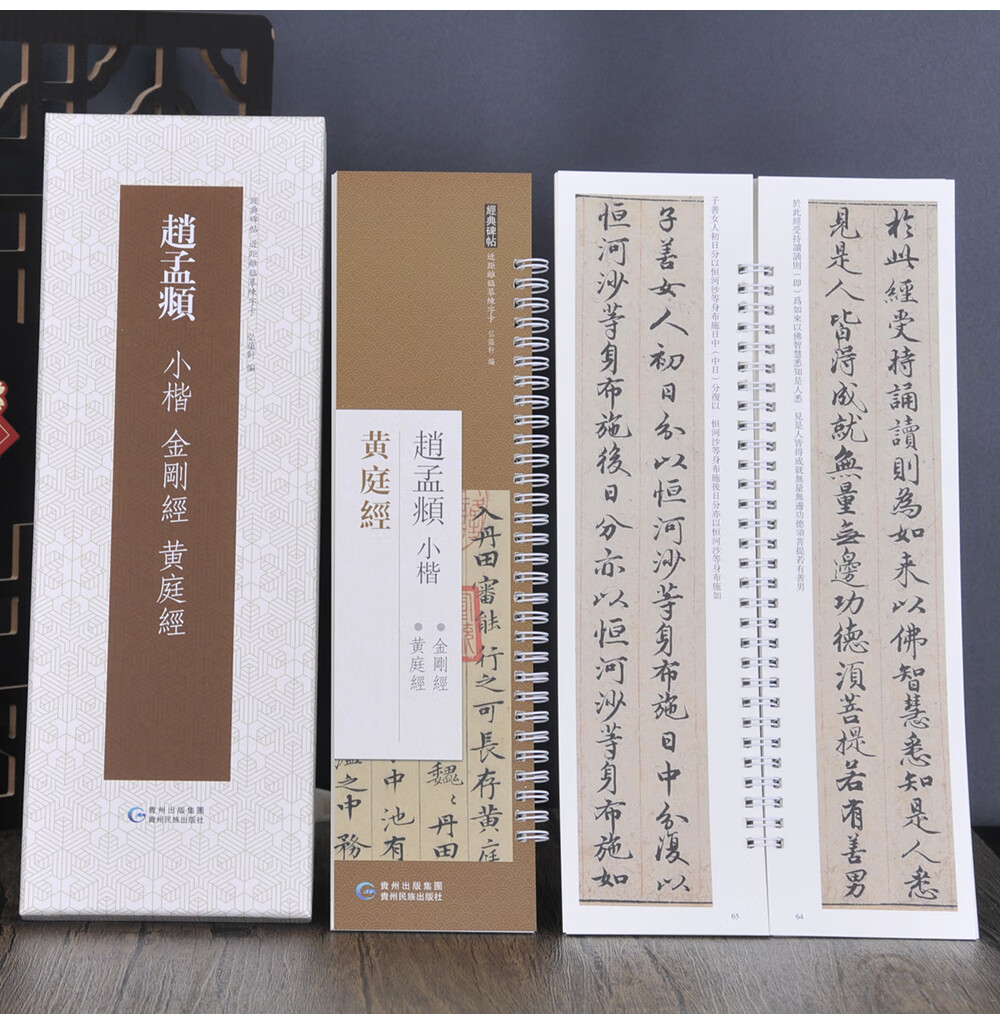 趙孟頫 小楷 金剛經 黃庭經
經典碑帖 近距離臨摹練字卡 弘蘊軒 編
貴州出版集團
貴州民族出版社
經典碑帖 近距離臨摹練字卡 弘蘊軒 編
趙孟頫 小楷
●金剛經
●黃庭經
黃庭經
入丹田審能行之可長存黃庭
魏〻丹田
中池有
之中務
貴州出版集團
貴州民族出版社
於此經受持讀誦則（即）爲如來以佛智慧悉知是人悉 見是人皆得成就無量無邊功德須菩提若有善男
於此經受持誦讀則為如来以佛智慧悉知是人悉
見是人皆得成就無量無邊功德須菩提若有善男
64
子善女人初日分以恒河沙等身布施日中（中日）分復以 恒河沙等身布施後日分亦以恒河沙等身布施如
子善女人初日分以恒河沙等身布施日中分復以
恒河沙等身布施後日分亦以恒河沙等身布施如
65